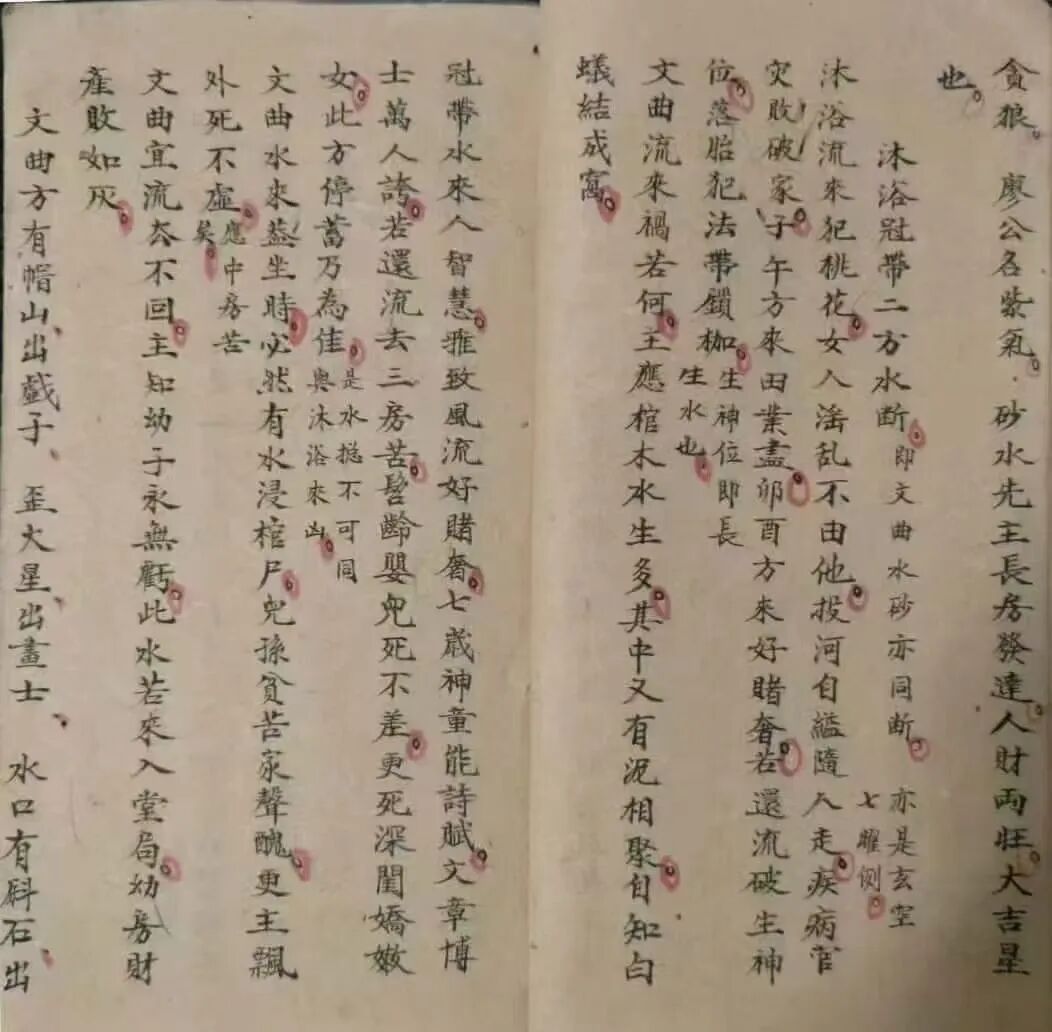 貪狼　廖公名紫氣。砂水先主長房發達。人財両旺。大吉星
也。
沐浴冠帶二方水断。即文曲水砂亦同断。亦是玄空
七曜例。
沐浴流來犯桃花。女人淫乱不由他。投河自縊隨人走。疾病官
灾敗破家。子午方來田業盡。卯酉方來好賭奢。若還流破生神
位。落胎犯法帶鎖枷。生神位即長
生水也。
文曲流來禍若何。主應棺木水生多。其中又有泥相聚。自知白
蟻結成窩。
冠帶水來人智慧。雅致風流好賭奢。七歲神童能詩賦。文章博
士萬人誇。若還流去三房苦。髫齡嬰兒死不差。更死深閨嬌嫩
女。此方停蓄乃為佳。是水搃不可同
與沐浴來凶。
文曲水來益坐時。必然有水浸棺尸。兒孫貧苦家聲醜。更主飄
外死不虛。應中房苦
矣。
文曲宜流去不回。主知幼子永無虧。此水若來入堂局。幼房財
產敗如灰。
文曲方有帽山、出戲子、歪火星、出畫士、水口有斜石、出